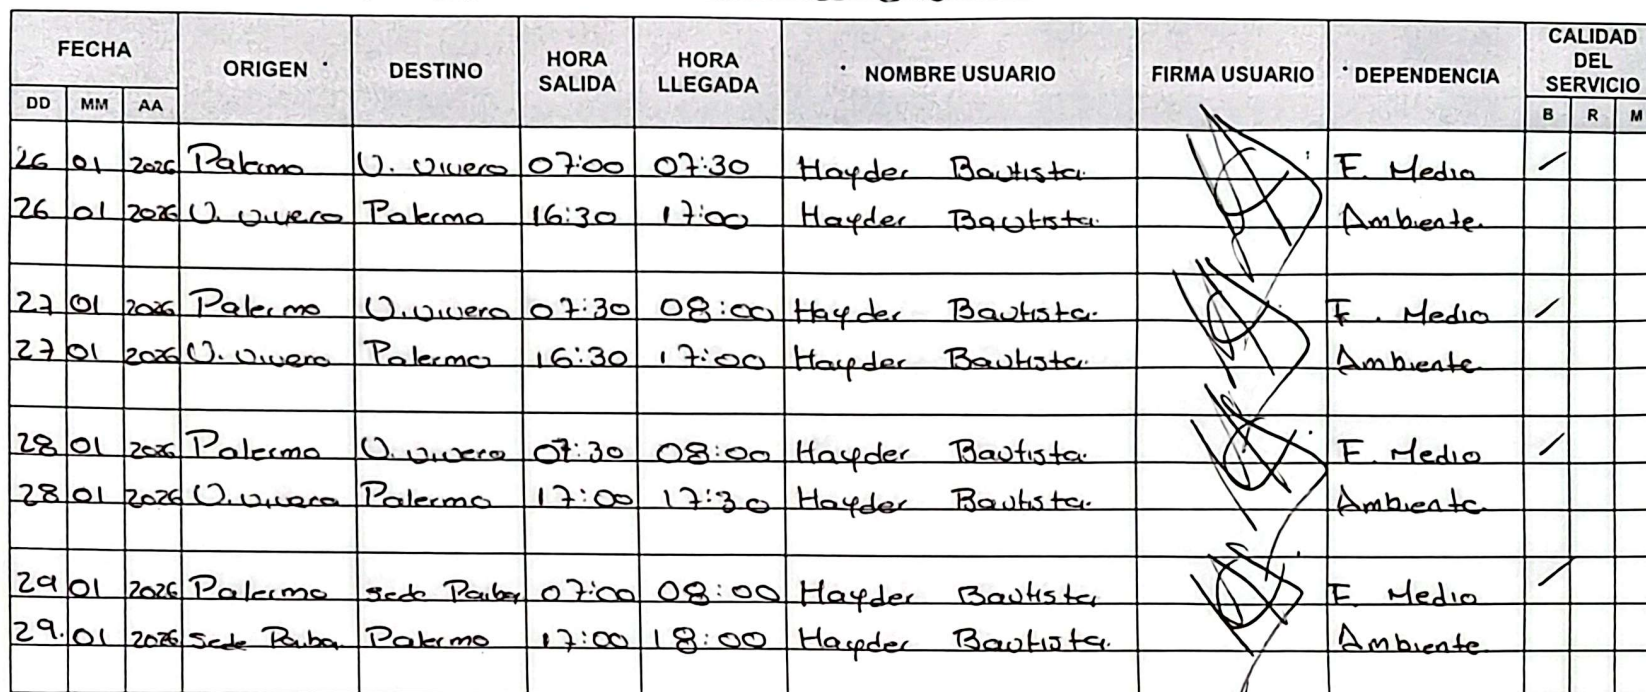 FECHA ORIGEN DESTINO HORA SALIDA HORA LLEGADA NOMBRE USUARIO FIRMA USUARIO DEPENDENCIA CALIDAD DEL SERVICIO
DD MM AA B R M
26 01 2026 Palermo U. Vivero 07:00 07:30 Hayder Bautista F. Medio /
26 01 2026 U. Vivero Palermo 16:30 17:00 Hayder Bautista Ambiente
27 01 2026 Palermo U. Vivero 07:30 08:00 Hayder Bautista F. Medio /
27 01 2026 U. Vivero Palermo 16:30 17:00 Hayder Bautista Ambiente
28 01 2026 Palermo U. Vivero 07:30 08:00 Hayder Bautista F. Medio /
28 01 2026 U. Vivero Palermo 17:00 17:30 Hayder Bautista Ambiente
29 01 2026 Palermo sede 07:00 08:00 Hayder Bautista F. Medio /
29. 01 2026 sede Palermo 17:00 18:00 Hayder Bautista Ambiente